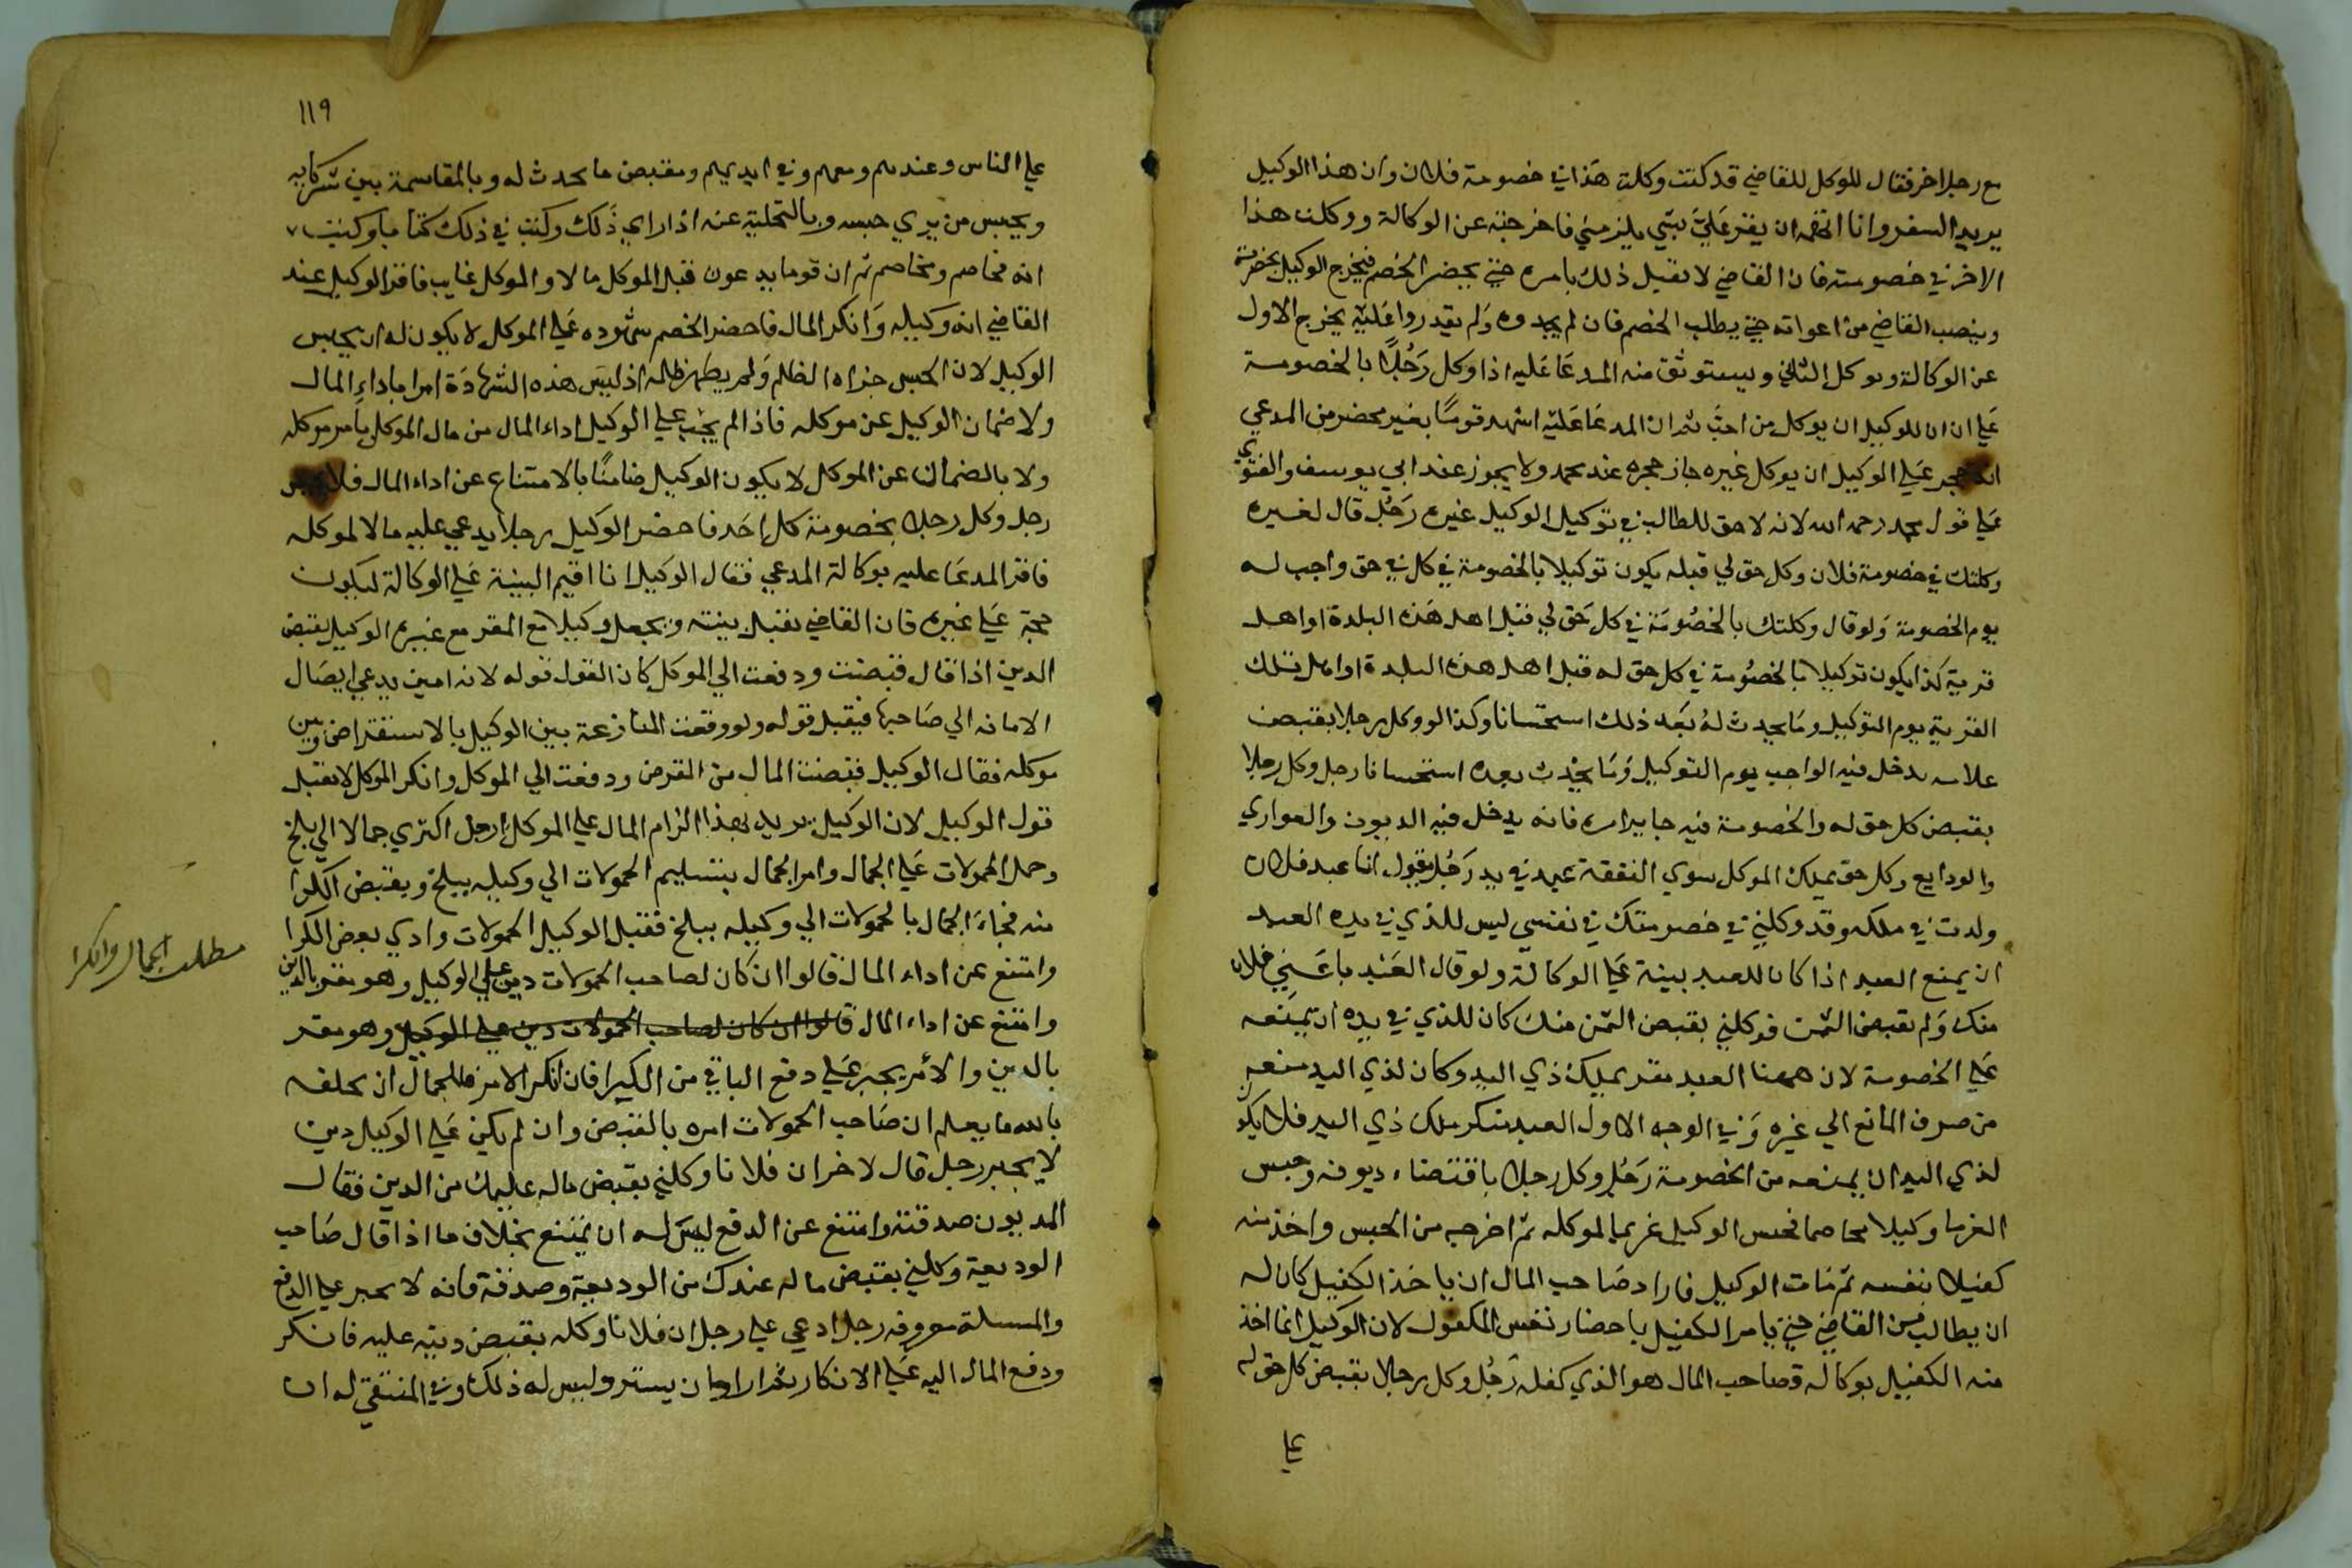 مع رجل اخر فقال الموكل للقاضي قد كنت وكلت هذا في خصومة فلان وان هذا الوكيل
يريد السفر وانا اتهمه ان يقر علي بشي يلزمني فاخرجته عن الوكالة ووكلت هذا
الاخر في خصومته فان القاضي لا يقبل ذلك بامره حتي يحضر الخصم فيخرج الوكيل بحضرته
وينصب القاضي من اعوانه حتي يطلب الخصم فان لم يجدوه ولم يقدروا عليه يخرج الاول
عن الوكالة ويوكل الثاني ويستوثق منه المدعا عليه اذا وكل رجلا بالخصومة
علي ان للوكيل ان يوكل من احب ثم ان المدعا عليه اشهد قوما بغير محضر من المدعي
انه حجر علي الوكيل ان يوكل غيره جاز حجره عند محمد ولا يجوز عند ابي يوسف والفتوي
علي قول محمد رحمه الله لانه لا حق للطالب في توكيل الوكيل غيره رجل قال لغيره
وكلتك في خصومة فلان وكل حق لي قبله يكون توكيلا بالخصومة في كل حق واجب له
يوم الخصومة ولو قال وكلتك بالخصومة في كل حق لي قبل اهل هذه البلدة او اهل
قرية كذا يكون توكيلا بالخصومة في كل حق له قبل اهل هذه البلدة او اهل تلك
القرية يوم التوكيل وما يحدث له بعد ذلك استحسانا وكذا لو وكل رجلا بقبض
علاته يدخل فيه الواجب يوم التوكيل وما يحدث بعده استحسانا رجل وكل رجلا
بقبض كل حق له والخصومة فيه جايز امره فانه يدخل فيه الديون والعواري
والودايع وكل حق يملك الموكل سوي النفقة عبد في يد رجل يقول انا عبد فلان
ولدت في ملكه وقد وكلني في خصومتك في نفسي ليس للذي في يده العبد
ان يمنع العبد اذا كان للعبد بينة علي الوكالة ولو قال العبد باعني فلان
منك ولم يقبض الثمن فوكلني بقبض الثمن منك كان للذي في يده ان يمنعه
علي الخصومة لان ههنا العبد مقر بملك ذي اليد وكان لذي اليد منعه
من صرف المانع الي غيره وفي الوجه الاول العبد منكر ملك ذي اليد فلا يكون
لذي اليد ان يمنعه من الخصومة رجل وكل رجلا باقتضاء ديونه وحبس
الغرما وكيلا مخاصما فحبس الوكيل غريما لموكله ثم اخرجه من الحبس واخذ منه
كفيلا بنفسه ثم مات الوكيل فاراد صاحب المال ان ياخذ الكفيل كان له
ان يطالب من القاضي حتي يامر الكفيل باحضار نفس المكفول لان الوكيل انما اخذ
منه الكفيل بوكالة وصاحب المال هو الذي كفله رجل وكل رجلا بقبض كل حق له
علي
١١٩
علي الناس وعندهم ومعهم وفي ايديهم ومقبض ما يحدث له وبالمقاسمة بين شركايه
ويحبس من يري حبسه وبالتخلية عنه اذا راي ذلك وكتب في ذلك كتابا وكتبت
انه مخاصم ومخاصم ثم ان قوما يدعون قبل الموكل مالا والموكل غايب فاقر الوكيل عند
القاضي انه وكيله وانكر المال فاحضر الخصم شهوده علي الموكل لا يكون له ان يحبس
الوكيل لان الحبس جزاء الظلم ولم يظهر ظلمه اذ ليس هذه الشهادة امرا باداء المال
ولا ضمان الوكيل عن موكله فاذا لم يجب علي الوكيل اداء المال من مال الموكل بامر موكله
ولا بالضمان عن الموكل لا يكون الوكيل ضامنا بالامتناع عن اداء المال فلا
رجل وكل رجلا بخصومة كل احد فاحضر الوكيل رجلا يدعي عليه مالا لموكله
فاقر المدعا عليه بوكالة المدعي فقال الوكيل انا اقيم البينة علي الوكالة ليكون
حجة علي غيره فان القاضي يقبل بينته ويجعل وكيلا مع المقر مع غيره الوكيل بقبض
الدين اذا قال قبضت ودفعت الي الموكل كان القول قوله لانه امين يدعي ايصال
الامانه الي صاحبها فيقبل قوله ولو وقعت المنازعة بين الوكيل بالاستقراض وبين
موكله فقال الوكيل قبضت المال من المقرض ودفعت الي الموكل وانكر الموكل لا يقبل
قول الوكيل لان الوكيل يريد بهذا الزام المال علي الموكل رجل اكتري جمالا الي بلخ
وحمل الحمولات علي الجمال وامر الجمال بتسليم الحمولات الي وكيله ببلخ وبقبض الكرا
منه فجاء الجمال بالحمولات الي وكيله ببلخ فقبل الوكيل الحمولات وادي بعض الكرا
وامتنع عن اداء المال قالوا ان كان لصاحب الحمولات دين علي الوكيل وهو مقر بالدين
وامتنع عن اداء المال قالوا ان كان لصاحب الحمولات دين علي الوكيل وهو مقر
بالدين والامر يجبر علي دفع الباقي من الكرا فان انكر الامر فللجمال ان يحلفه
بالله ما يعلم ان صاحب الحمولات امره بالقبض وان لم يكن علي الوكيل دين
لا يجبر رجل قال لاخر ان فلانا وكلني بقبض ماله عليك من الدين فقال
المديون صدقته وامتنع عن الدفع ليس له ان يمتنع بخلاف ما اذا قال صاحب
الوديعة وكلني بقبض ماله عندك من الوديعة وصدقه فانه لا يجبر علي الدفع
والمسلة معروفه رجل ادعي علي رجل ان فلانا وكله بقبض دينه عليه فانكر
ودفع المال اليه علي الانكار ثم اراد ان يسترد ليس له ذلك وفي المنتقي له ان
مطلب الجمال والكرا